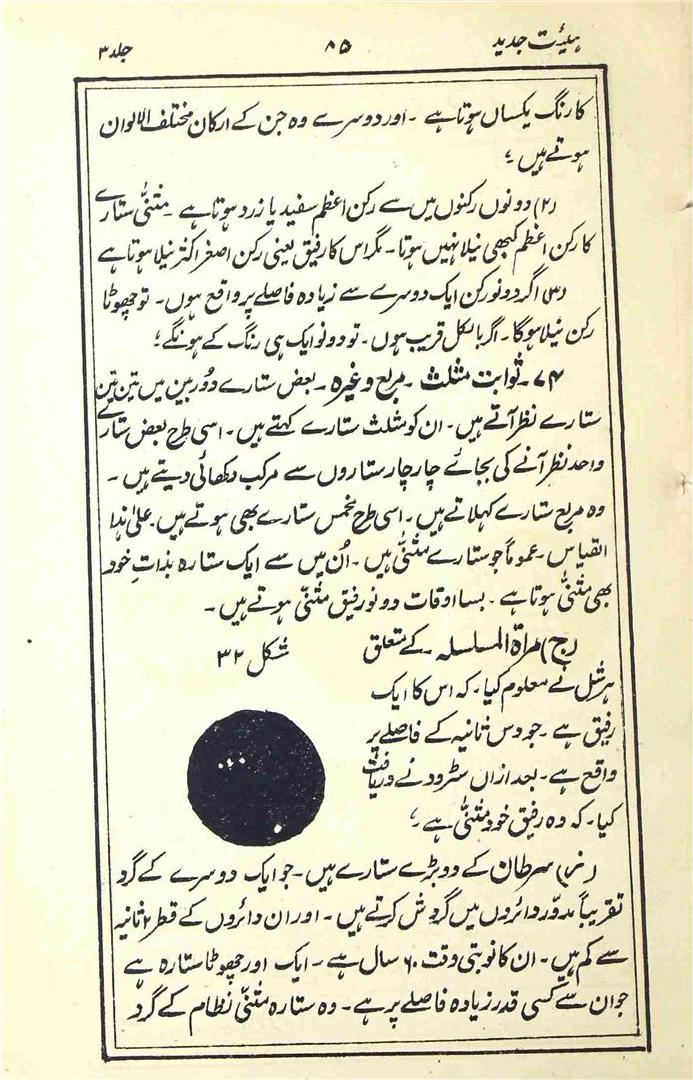 ہیئت جدید ۸۵ جلد ۳
کا رنگ یکساں ہوتا ہے ۔ اور دوسرے وہ جن کے ارکان مختلف الالوان
ہوتے ہیں ؛
(۲) دونوں رکنوں میں سے رکن اعظم سفید یا زرد ہوتا ہے ۔ مثنیّٰ ستارے
کا رکن اعظم کبھی نیلا نہیں ہوتا ۔ مگر اس کا رفیق یعنی رکن اصغر اکثر نیلا ہوتا ہے
(۳) اگر دونو رکن ایک دوسرے سے زیادہ فاصلے پر واقع ہوں ۔ تو چھوٹا
رکن نیلا ہوگا ۔ اگر بالکل قریب ہوں ۔ تو دونو ایک ہی رنگ کے ہونگے ؛
۷۴ ۔ ثوابت مثلث ۔ مربع وغیرہ ۔ بعض ستارے دُوربین میں تین تین
ستارے نظر آتے ہیں ۔ ان کو مثلث ستارے کہتے ہیں ۔ اسی طرح بعض ستارے
واحد نظر آنے کی بجائے چار چار ستاروں سے مرکب دکھائی دیتے ہیں ۔
وہ مربع ستارے کہلاتے ہیں ۔ اسی طرح مخمس ستارے بھی ہوتے ہیں ۔ علیٰ ہذا
القیاس ۔ عموماً جو ستارے مثنیّٰ ہیں ۔ اُن میں سے ایک ستارہ بذاتِ خود
بھی مثنیّٰ ہوتا ہے ۔ بسا اوقات دونو رفیق مثنیّٰ ہوتے ہیں ۔
(ج) مراۃ المسلسلہ ۔ کے متعلق
شکل ۳۲
ہرشل نے معلوم کیا ۔ کہ اس کا ایک
رفیق ہے ۔ جو دس ثانیہ کے فاصلے پر
واقع ہے ۔ بعد ازاں سٹرود نے دریافت
کیا ۔ کہ وہ رفیق خود مثنیّٰ ہے ؛
سرطان کے دو بڑے ستارے ہیں ۔ جو ایک دوسرے کے گرد
تقریباً مدوّر دائروں میں گردش کرتے ہیں ۔ اور ان دائروں کے قطر ۲ ثانیہ
سے کم ہیں ۔ ان کا نوبتی وقت ۶۰ سال ہے ۔ ایک اور چھوٹا ستارہ ہے
جو ان سے کسی قدر زیادہ فاصلے پر ہے ۔ وہ ستارہ مثنیّٰ نظام کے گرد